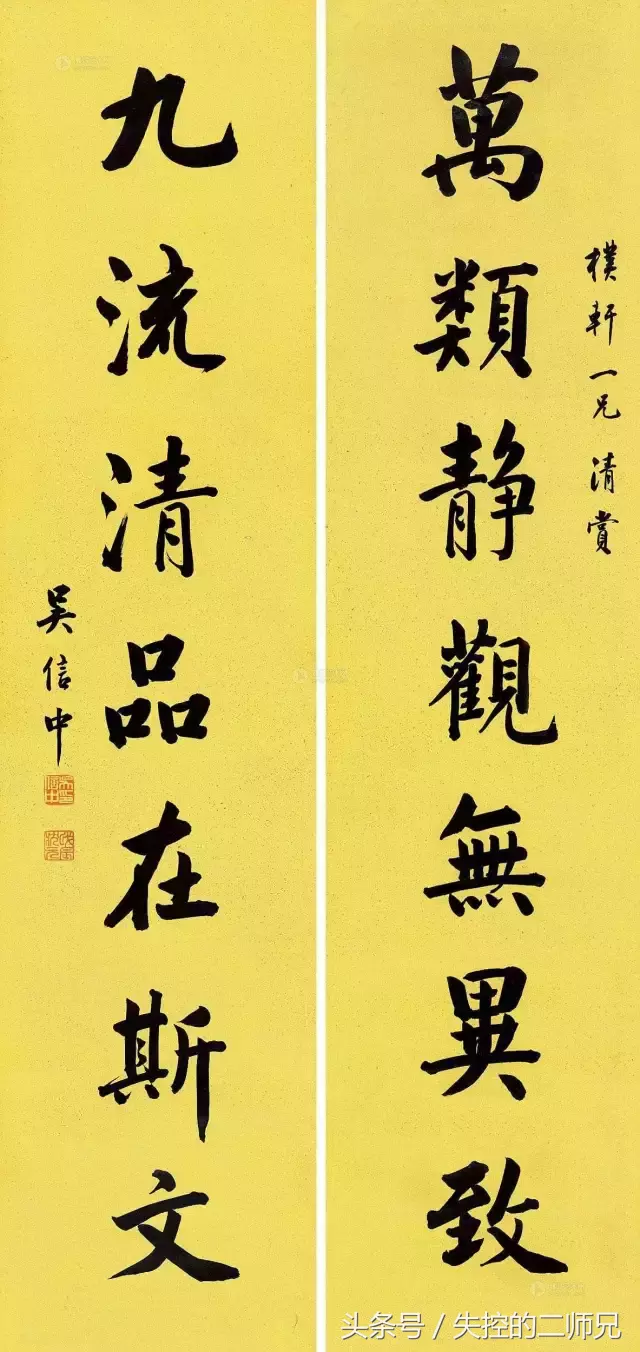 樸軒一兄清賞
萬類静觀無異致
九流清品在斯文
吴信中
头条号 / 失控的二师兄